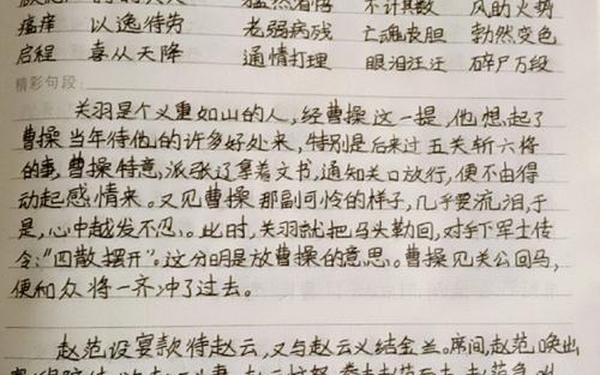 瘙痒 以逸待劳 老弱病残 亡魂丧胆 勃然变色
启程 喜从天降 通情打理 眼泪汪汪 碎尸万段
精彩句段:
关羽是个义重如山的人,经曹操这一提,他想起了
曹操当年待他的许多好处来,特别是后来过五关斩六将
的事,曹操特意派张辽拿着文书,通知关口放行,便不由得
动起感情来。又见曹操那副可怜的样子,几乎要流泪,于
是,心中越发不忍。此时,关羽就把马头勒回,对手下军士传
令:“四散摆开”。这分明是放曹操的意思。曹操见关公回马,
便和众将一齐冲了过去。
赵范设宴款待赵云,又与赵云义结金兰。席间,赵范唤出